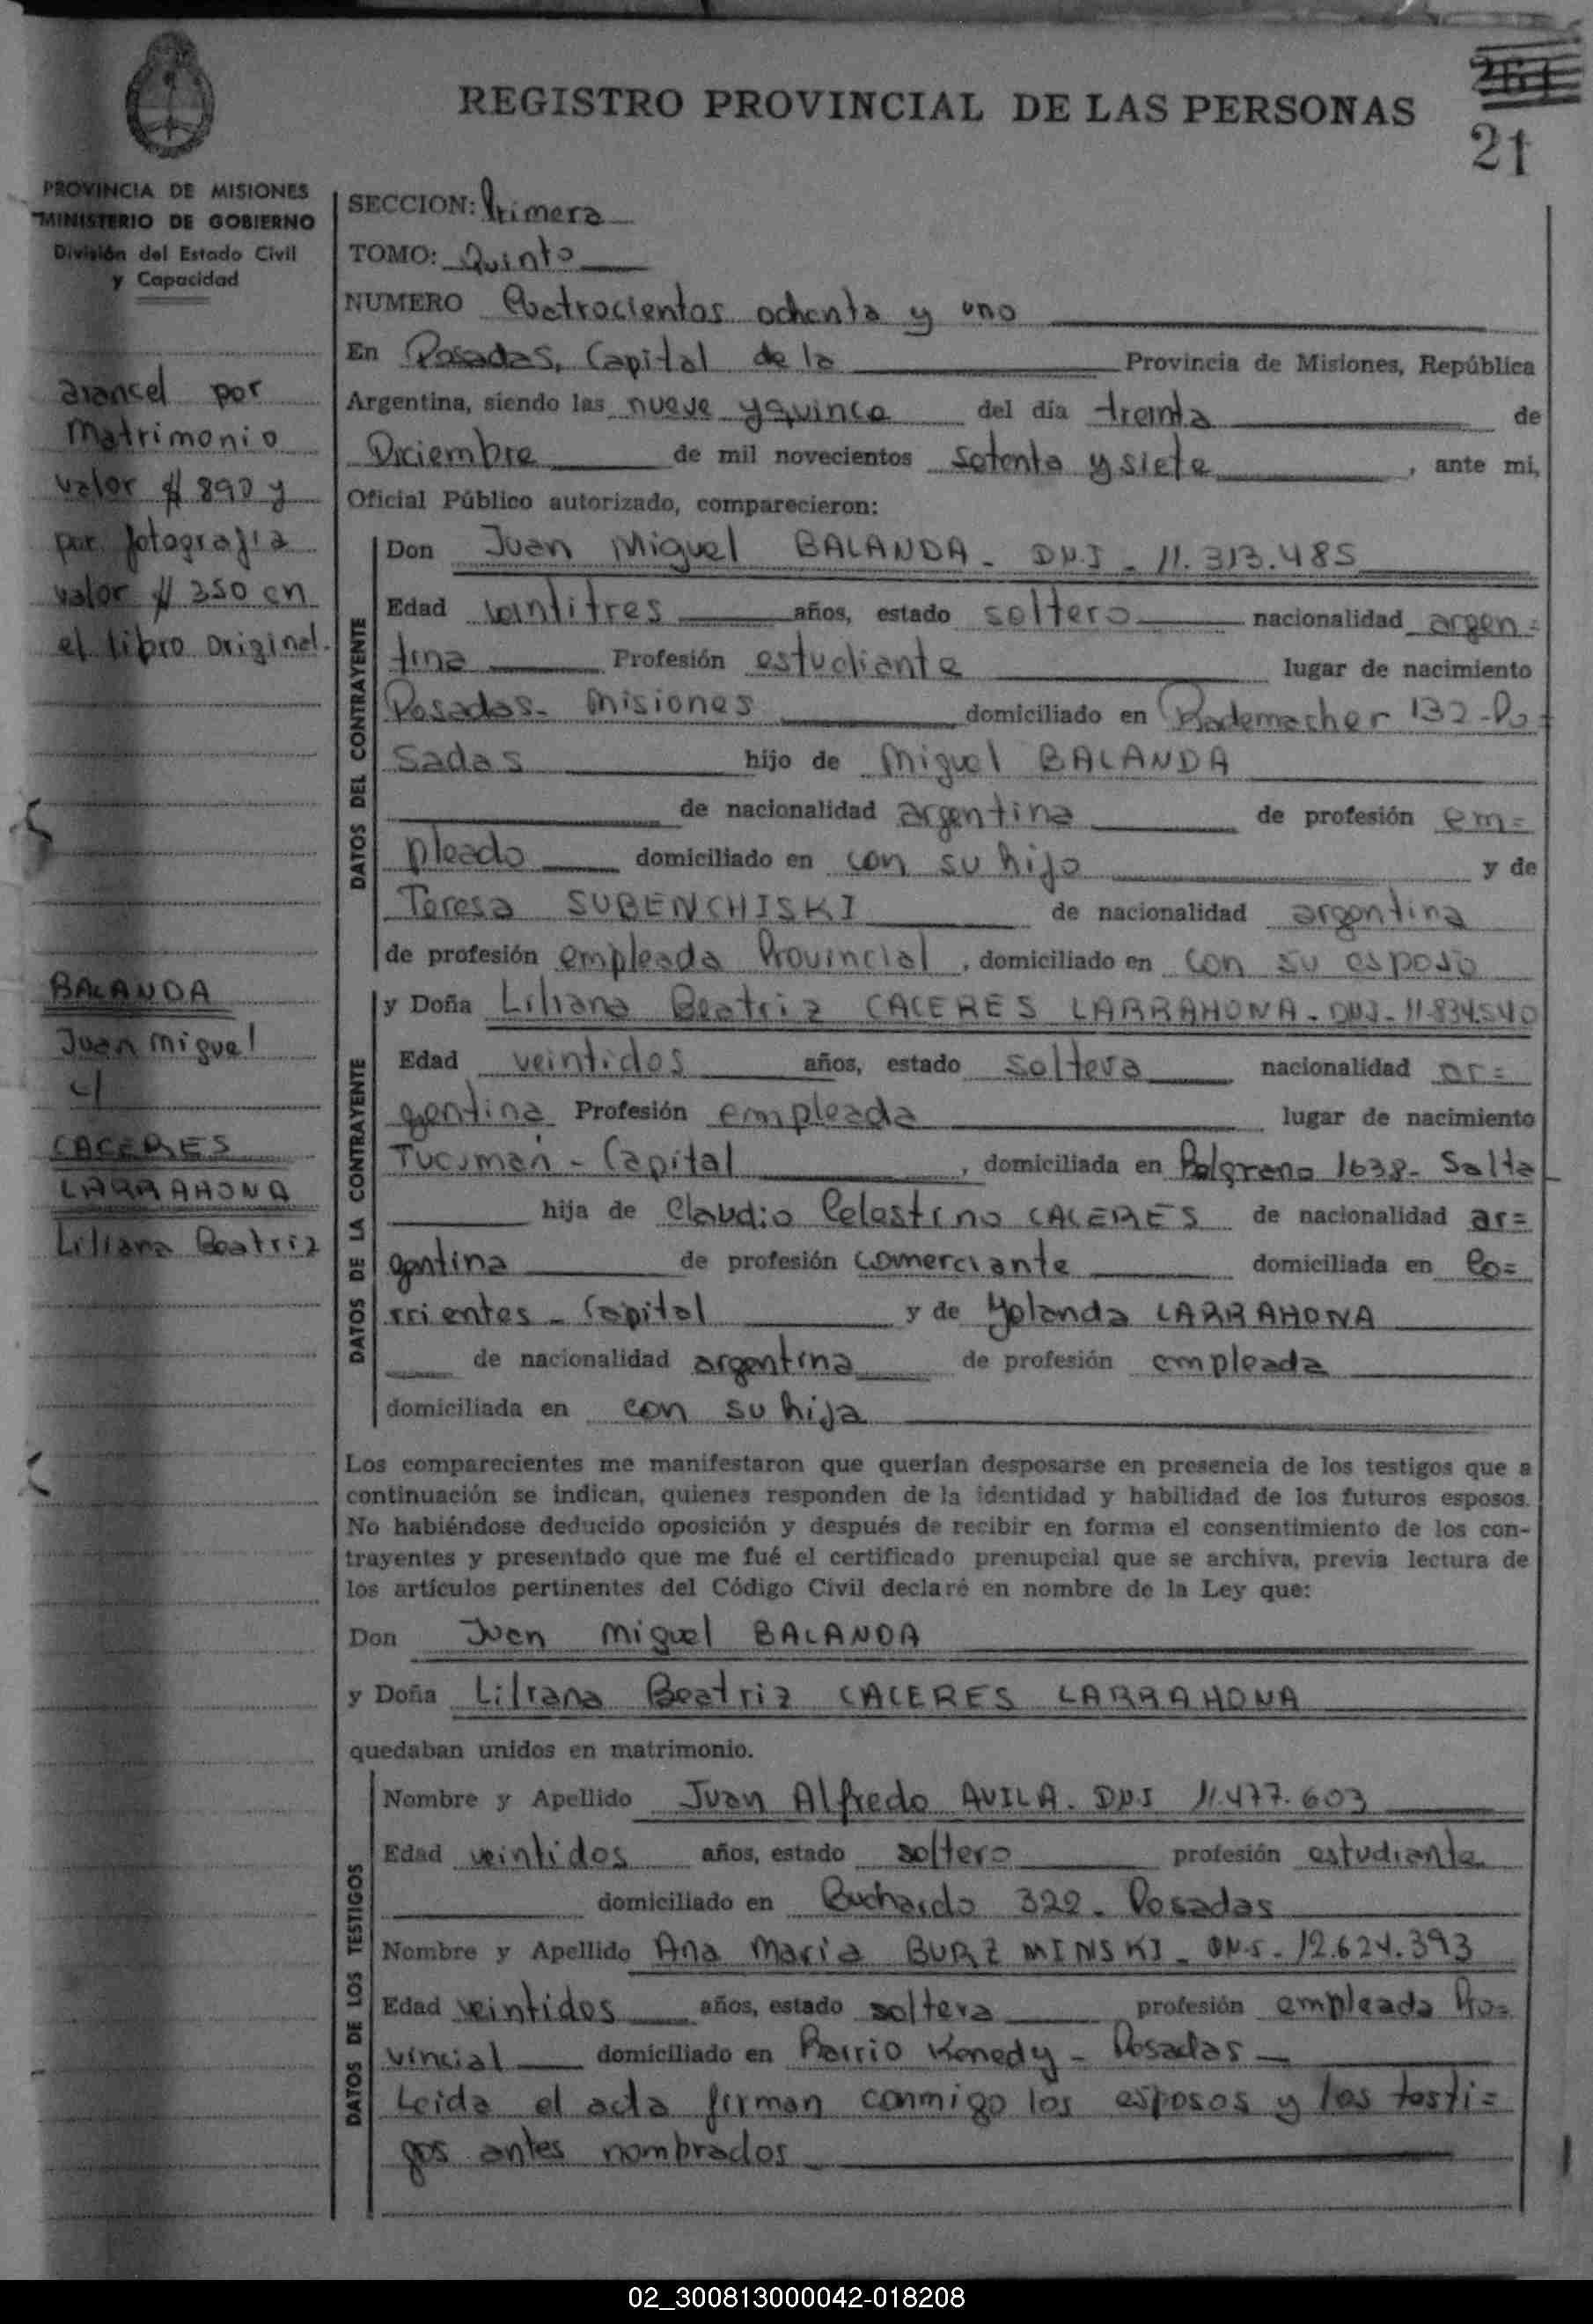 REGISTRO PROVINCIAL DE LAS PERSONAS
21
PROVINCIA DE MISIONES
MINISTERIO DE GOBIERNO
División del Estado Civil
y Capacidad
arancel por
Matrimonio
valor $ 890 y
por fotografia
valor $ 350 en
el libro original.
BALANDA
Juan Miguel
c/
CACERES
LARRAHONA
Liliana Beatriz
SECCION: Primera
TOMO: Quinto
NUMERO Cuatrocientos ochenta y uno
En Posadas, Capital de la Provincia de Misiones, República
Argentina, siendo las nueve y quince del día treinta de
Diciembre de mil novecientos setenta y siete, ante mi,
Oficial Público autorizado, comparecieron:
DATOS DEL CONTRAYENTE
Don Juan Miguel BALANDA - DNI - 11.313.485
Edad veintitres años, estado soltero nacionalidad argen=
tina Profesión estudiante lugar de nacimiento
Posadas - Misiones domiciliado en Rademacher 132 - Po=
sadas hijo de Miguel BALANDA
de nacionalidad argentina de profesión em=
pleado domiciliado en con su hijo y de
Teresa SUBENCHISKI de nacionalidad argentina
de profesión empleada Provincial, domiciliado en con su esposo
DATOS DE LA CONTRAYENTE
y Doña Liliana Beatriz CACERES LARRAHONA - DNI - 11.834.540
Edad veintidos años, estado soltera nacionalidad ar=
gentina Profesión empleada lugar de nacimiento
Tucumán - Capital, domiciliada en Belgrano 1638 - Salta
hija de Claudio Celestino CACERES de nacionalidad ar=
gentina de profesión comerciante domiciliada en Co=
rrientes - Capital y de Yolanda LARRAHONA
de nacionalidad argentina de profesión empleada
domiciliada en con su hija
Los comparecientes me manifestaron que querían desposarse en presencia de los testigos que a
continuación se indican, quienes responden de la identidad y habilidad de los futuros esposos.
No habiéndose deducido oposición y después de recibir en forma el consentimiento de los con-
trayentes y presentado que me fué el certificado prenupcial que se archiva, previa lectura de
los artículos pertinentes del Código Civil declaré en nombre de la Ley que:
Don Juan Miguel BALANDA
y Doña Liliana Beatriz CACERES LARRAHONA
quedaban unidos en matrimonio.
DATOS DE LOS TESTIGOS
Nombre y Apellido Juan Alfredo AVILA - DNI 11.477.603
Edad veintidos años, estado soltero profesión estudiante
domiciliado en Buchardo 322 - Posadas
Nombre y Apellido Ana Maria BURZMINSKI - DNI - 12.624.393
Edad veintidos años, estado soltera profesión empleada Pro=
vincial domiciliado en Barrio Kenedy - Posadas -
Leida el acta firman conmigo los esposos y los testi=
gos antes nombrados
02_300813000042-018208